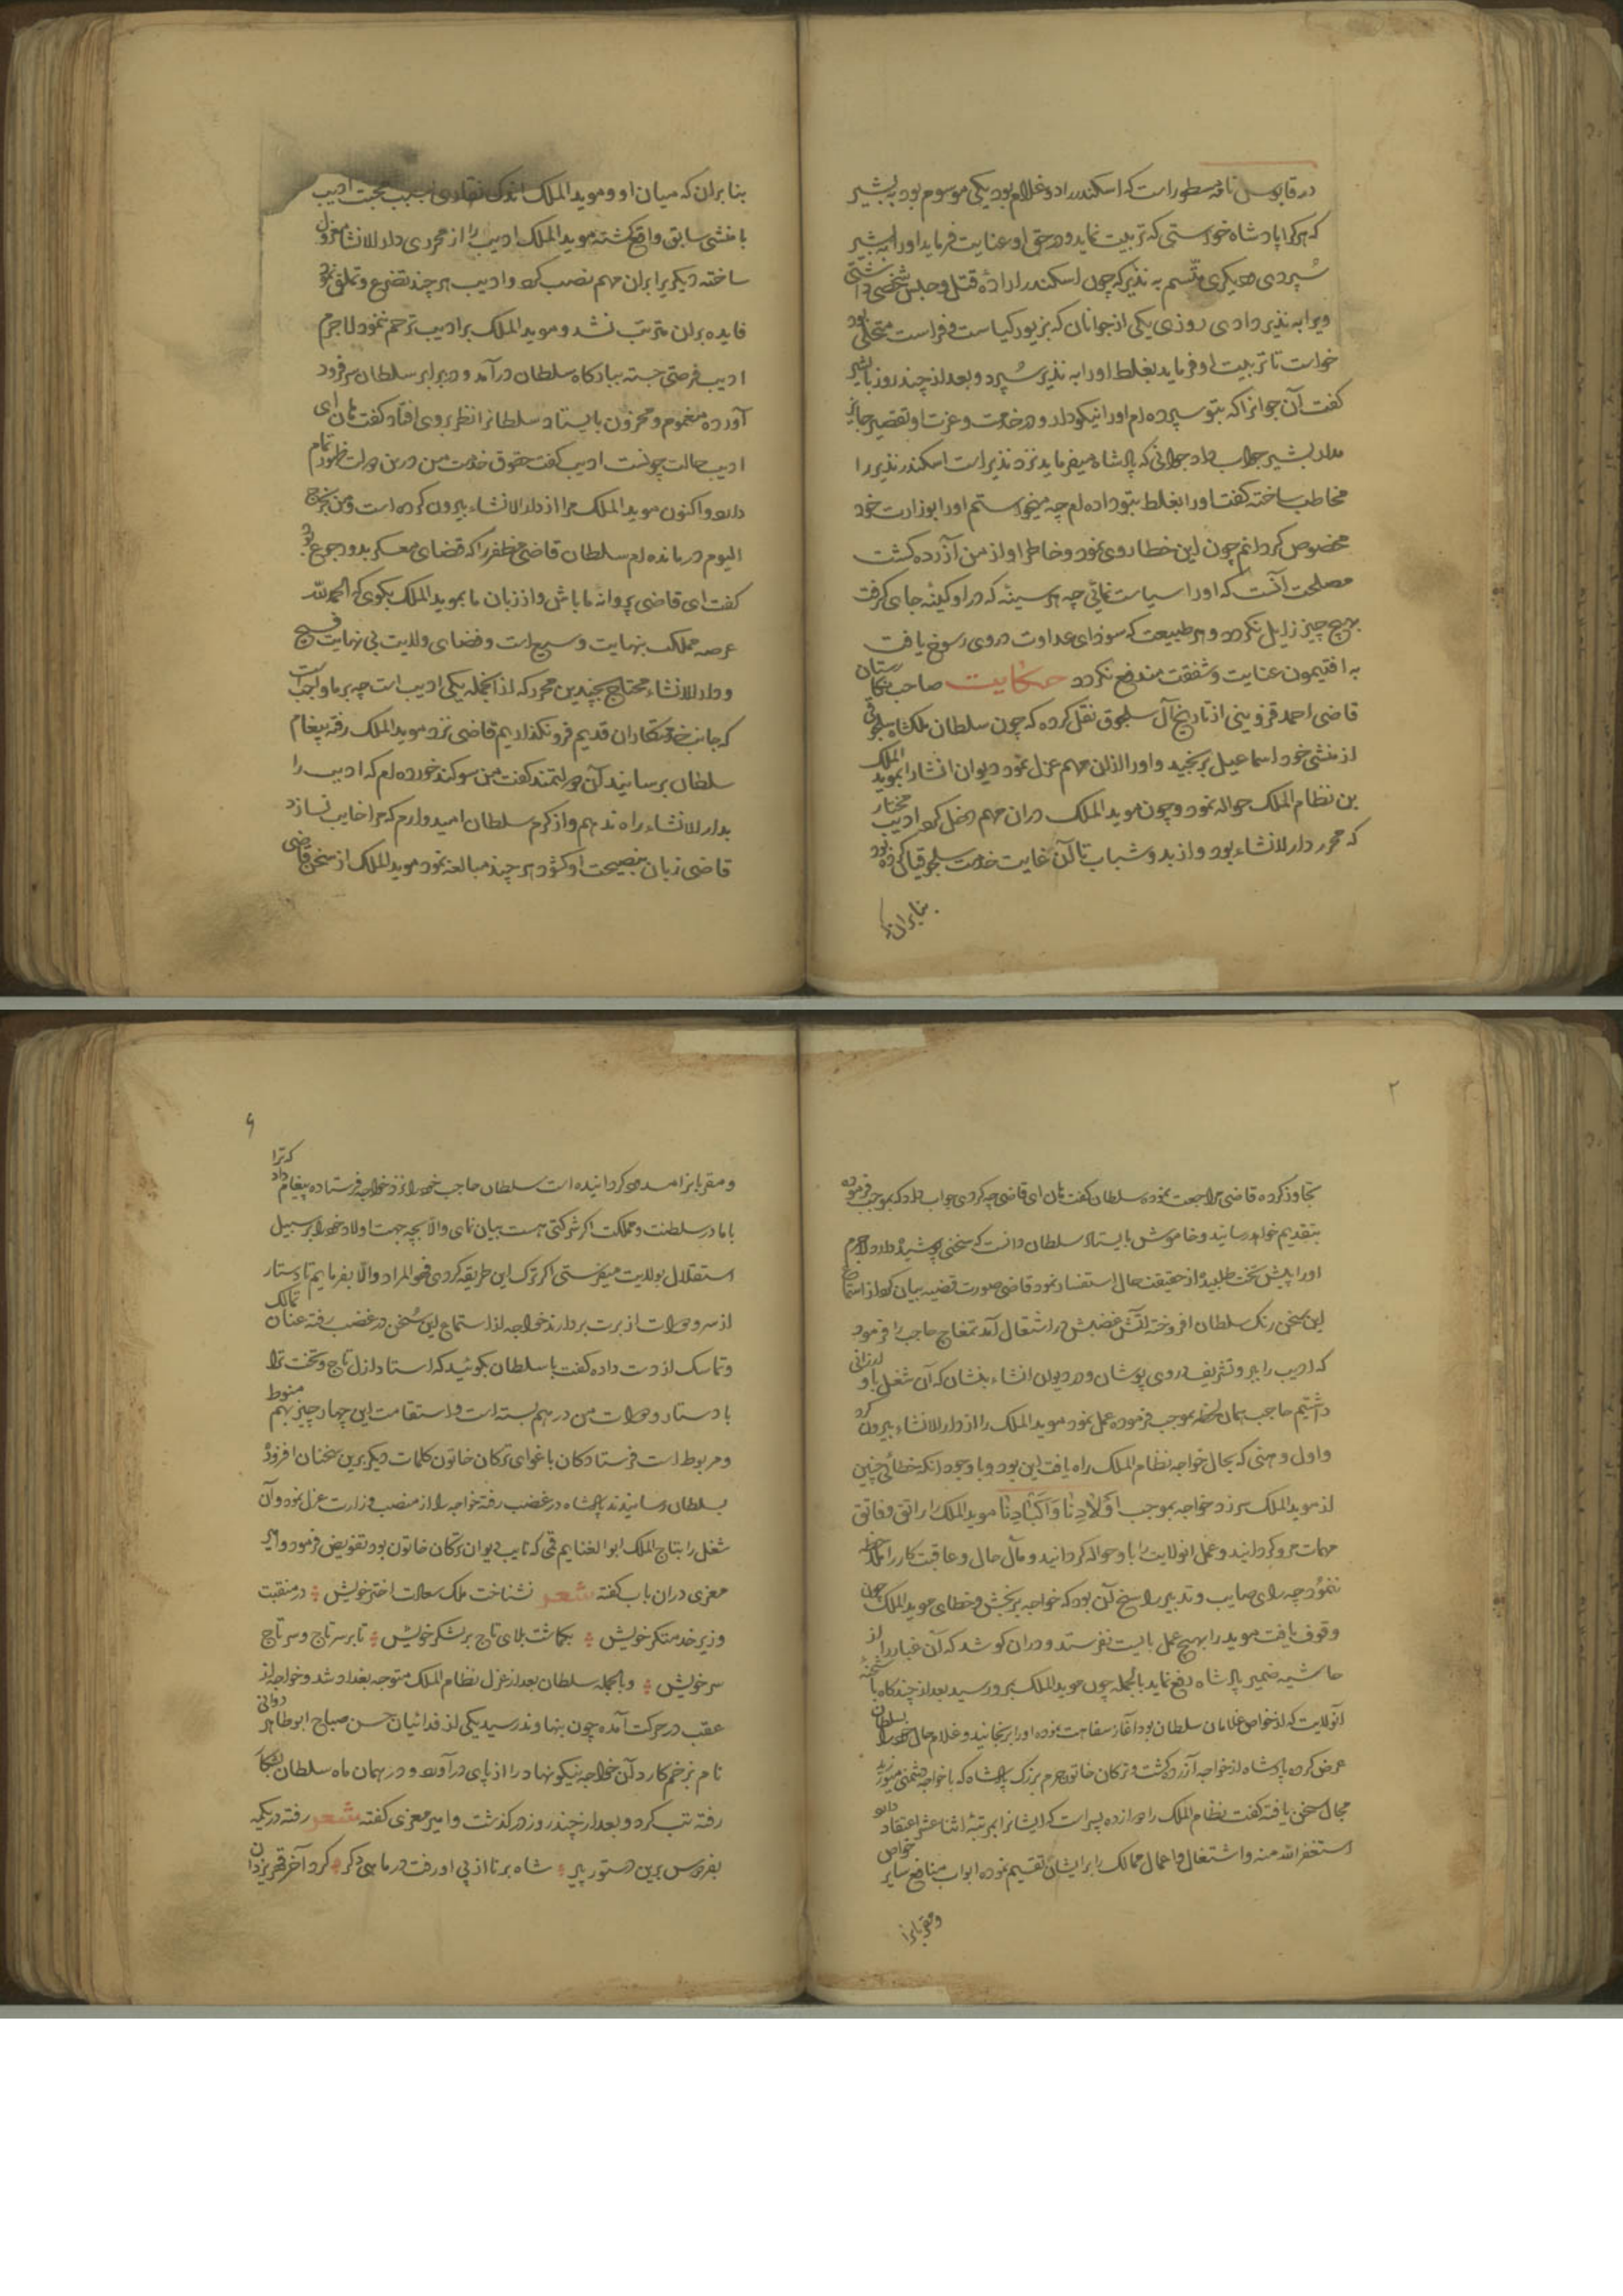 در قابوس نامه مسطور است که اسکندر را دو غلام بود یکی موسوم بود به بشیر
که هرکرا پادشاه خواستی که تربیت نماید و در حق او عنایت فرماید او را به بشیر
سپردی و دیگری متسم به نذیر که چون اسکندر اراده قتل و حبس شخصی داشتی
ویرا به نذیر دادی روزی یکی از جوانان که بزیور کیاست و فراست متحلی بود
خواست تا تربیت او فرماید بغلط او را به نذیر سپرد و بعد از چند روز با بشیر
کفت آن جوانرا که بتو سپرده ام او را نیکو دار و در خدمت و عزت او تقصیر جایز
مدار بشیر جواب داد جوانی که پادشاه میفرماید نزد نذیر است اسکندر نذیر را
مخاطب ساخته کفت او را بغلط بتو داده ام چه میخواستم او را بوزارت خود
مخصوص کردانم چون این خطا روی نمود و خاطر او از من آزرده کشت
مصلحت آنست که او را سیاست نمائی چه هر سینه که در او کینه جای کرفت
بهیچ چیز زایل نکردد و هر طبیعت که سودای عداوت در وی رسوخ یافت
به افتیمون عنایت و شفقت مندفع نکردد حکایت صاحب نکارستان
قاضی احمد قزوینی از تاریخ آل سلجوق نقل کرده که چون سلطان ملکشاه سلجوقی
از منشی خود اسماعیل برنجید و او را از ان مهم عزل نمود دیوان انشا را بموید الملک
بن نظام الملک حواله نمود و چون موید الملک در ان مهم دخل کرد ادیب مختار
که محرر دار الانشاء بود و از بدو شباب تا آن غایت خدمت سلجوقیان کرده بود
بنابران
بنابران که میان او و موید الملک اندک نقاری بسبب محبت ادیب
با منشی سابق واقع کشته موید الملک ادیب را از محرری دار الانشا معزول
ساخته دیکری را بران مهم نصب کرد و ادیب هر چند تضرع و تملق نمود
فایده بران مترتب نشد و موید الملک بر ادیب ترحم ننمود لاجرم
ادیب فرصتی جسته ببارکاه سلطان در آمد و در برابر سلطان سر فرود
آورده مغموم و محزون بایستاد سلطانرا نظر بروی افتاد کفت هان ای
ادیب حالت چونست ادیب کفت حقوق خدمت من درین دولت ظهور تمام
دارد و اکنون موید الملک مرا از دار الانشاء بیرون کرده است و من بخرج
الیوم در مانده ام سلطان قاضی مظفر را که قضای معسکر بدو رجوع بود
کفت ای قاضی پروانه ما باش و از زبان ما بموید الملک بکوی که الحمد لله
عرصه مملکت بنهایت وسیع است و فضای ولایت بی نهایت فسیح
و دار الانشاء محتاج بچندین محرر که از انجمله یکی ادیب است چه بر ما واجب است
که جانب خدمتکاران قدیم فرو نکذاریم قاضی نزد موید الملک رفته پیغام
سلطان برسانید آن دولتمند کفت من سوکند خورده ام که ادیب را
بدار الانشاء راه ندهم و از کرم سلطان امیدوارم که مرا خایب نسازد
قاضی زبان بنصیحت او کشود هر چند مبالغه نمود موید الملک از سخن قاضی
۲
تجاوز کرده قاضی مراجعت نموده سلطان کفت هان ای قاضی چه کردی جواب داد که بموجب فرموده
بتقدیم خواهد رسانید و خاموش بایستاد سلطان دانست که سخنی پوشیده دارد لاجرم
او را پیش تخت طلبیده از حقیقت حال استفسار نمود قاضی صورت قضیه بیان کرد از استماع
این سخن رنک سلطان افروخته آتش غضبش در اشتعال آمد تمغاج حاجب را فرمود
که ادیب را ببر و تشریف در وی پوشان و در دیوان انشاء بنشان که آن شغل باو ارزانی
داشتیم حاجب همان لحظه بموجب فرموده عمل نمود موید الملک را از دار الانشاء بیرون کرد
و اول وهنی که بحال خواجه نظام الملک راه یافت این بود و با وجود انکه خطائی چنین
از موید الملک سر زد خواجه بموجب اولادنا و اکبادنا موید الملک را راتق و فاتق
مهمات مرو کردانید و عمل انولایت را باو حواله کردانید و مآل حال و عاقبت کار را ملاحظه
ننمود چه رای صایب و تدبیر راسخ آن بود که خواجه بر نجش و خطای موید الملک چون
وقوف یافت موید را بهیچ عمل بایست نفرستد و دران کوشد که آن غبار را از
حاشیه ضمیر پادشاه دفع نماید بالجمله چون موید الملک بمرو رسید بعد از چندکاه با شحنه
آنولایت که از خواص غلامان سلطان بود آغاز سفاهت نموده او را برنجانید و غلام حال خود را بسلطان
عرض کرده پادشاه از خواجه آزرده کشت و ترکان خاتون حرم بزرک پادشاه که با خواجه دشمنی میورزید
مجال سخن یافته کفت نظام الملک را دوازده پسر است که ایشانرا بمرتبه اثنا عشر اعتقاد دارد
استغفر الله منه و اشتغال و اعمال ممالک را بر ایشان تقسیم نموده ابواب منافع سایر خواص
و مقربانرا
۶
و مقربانرا مسدود کردانیده است سلطان حاجب خود را نزد خواجه فرستاده پیغام داد که ترا
با ما در سلطنت و مملکت اکر شرکتی هست بیان نمای والا بچه جهت اولاد خود را بر سبیل
استقلال بولایت میفرستی اکر ترک این طریقه کردی فهو المراد والا بفرمایم تا دستار
از سر و دوات از برت بردارند خواجه از استماع این سخن در غضب رفته عنان تمالک
و تماسک از دست داده کفت با سلطان بکوئید که استاد ازل تاج و تخت ترا
با دستار و دوات من در هم بسته است و استقامت این چهار چیز بهم منوط
و مربوط است فرستادکان باغوای ترکان خاتون کلمات دیکر برین سخنان افزوده
بسلطان رسانیدند پادشاه در غضب رفته خواجه را از منصب وزارت عزل نمود و آن
شغل را بتاج الملک ابو الغنایم قمی که نایب دیوان ترکان خاتون بود تفویض فرمود و امیر
معزی دران باب کفته شعر نشناخت ملک سعادت اختر خویش در منقبت
وزیر خدمتکر خویش بکماشت بلای تاج بر لشکر خویش تا بر سر تاج و سر تاج
سر خویش و بالجمله سلطان بعد از عزل نظام الملک متوجه بغداد شد و خواجه از
عقب در حرکت آمده چون بنهاوند رسید یکی از فدائیان حسن صباح ابو طاهر دوانی
نام بزخم کارد آن خواجه نیکو نهاد را از پای در آورد و در همان ماه سلطان بشکار
رفته تب کرد و بعد از چند روز در کذشت و امیر معزی کفته شعر رفت در یکمه
بفردوس برین دستور پیر شاه برنا از پی او رفت در ماهی دکر کرد آخر قهر یزدان